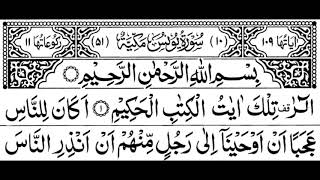 اٰیَاتُهَا ۱۰۹ (۱۰) سُوْرَةُ يُوْنُسَ مَكِّيَّةٌ (۵۱) رُكُوْعَاتُهَا ۱۱
بِسْمِ اللّٰهِ الرَّحْمٰنِ الرَّحِيْمِ
الٓرٰ ۫ تِلْكَ اٰيٰتُ الْكِتٰبِ الْحَكِيْمِ ۝۱ اَكَانَ لِلنَّاسِ
عَجَبًا اَنْ اَوْحَيْنَاۤ اِلٰى رَجُلٍ مِّنْهُمْ اَنْ اَنْذِرِ النَّاسَ